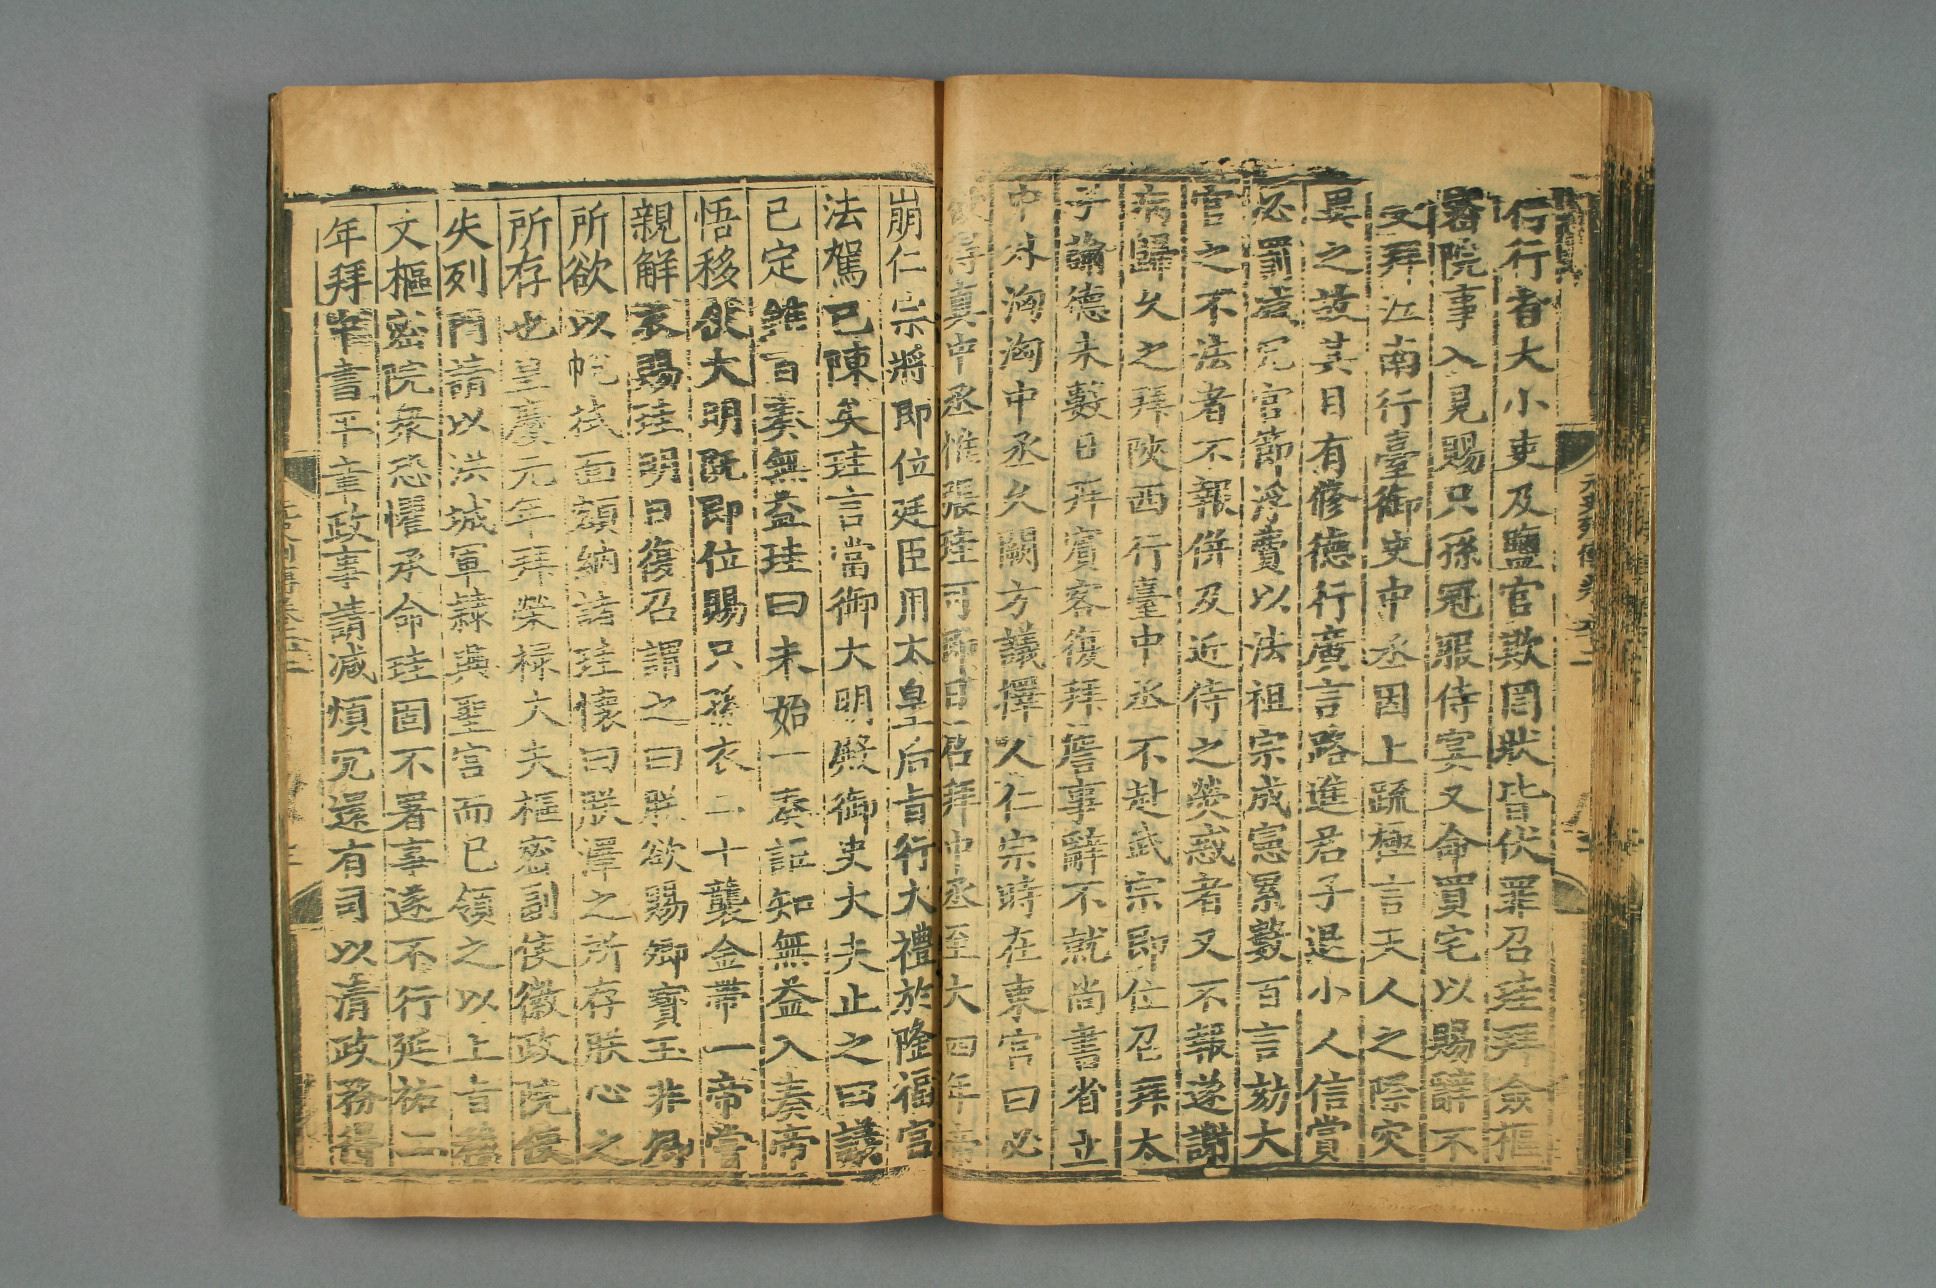 行行省大小吏及鹽官欺罔狀皆伏罪召珪拜僉樞
密院事入見賜只孫冠服侍宴又命買宅以賜辭不
文拜江南行臺御史中丞因上疏極言天人之際灾
異之故其目有修德行廣言路進君子退小人信賞
必罰減冗官節浮費以法祖宗成憲累數百言劾大
官之不法者不報併及近侍之熒惑者又不報遂謝
病歸久之拜陝西行臺中丞不赴武宗即位召拜太
子諭德未數日拜賓客復拜詹事辭不就尚書省立
中外洶洶中丞久闕方議擇人仁宗時在東宮曰必
得真中丞惟張珪可即日召拜中丞至大四年帝
崩仁宗將即位廷臣用太皇后旨行大禮於隆福宮
法駕已陳矣珪言當御大明殿御史大夫止之曰議
已定雖百奏無益珪曰未始一奏詎知無益入奏帝
悟移仗大明既即位賜只孫衣二十襲金帶一帝嘗
親解衣賜珪明日復召謂之曰朕欲賜卿寶玉非卿
所欲以帨拭面額納諸珪懷曰朕澤之所存朕心之
所存也皇慶元年拜榮祿大夫樞密副使徽政院使
失列門請以洪城軍隸興聖宮而已領之以上旨
文樞密院衆恐懼承命珪固不署事遂不行延祐二
年拜中書平章政事請減煩冗還有司以清政務得
元史列傳卷六十二